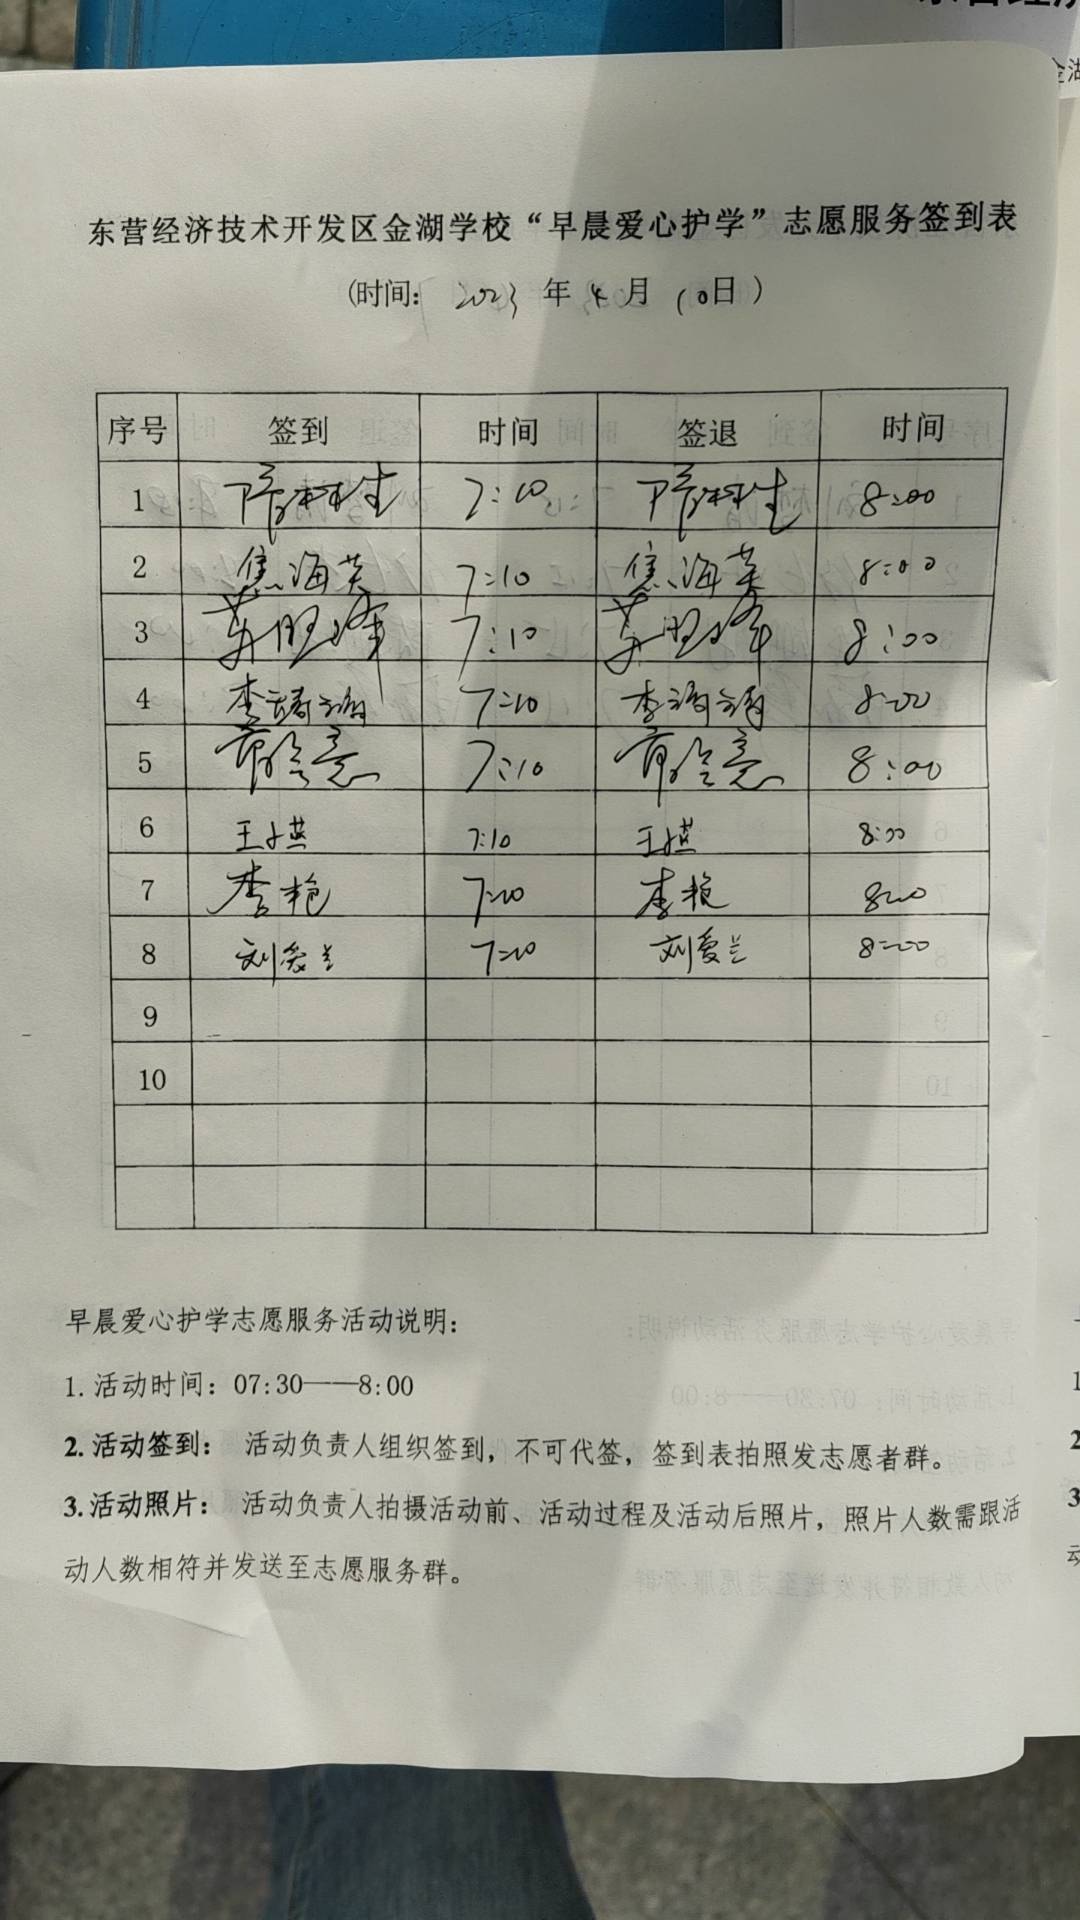 东营经济技术开发区金湖学校“早晨爱心护学”志愿服务签到表
(时间: 2023 年 4 月 10日)
序号 签到 时间 签退 时间
1 7:10 8:00
2 焦海英 7:10 焦海英 8:00
3 7:10 8:00
4 李 7:10 李 8:00
5 7:10 8:00
6 王 燕 7:10 王 燕 8:00
7 李艳 7:10 李艳 8:00
8 刘爱兰 7:10 刘爱兰 8:00
9
10
早晨爱心护学志愿服务活动说明:
1. 活动时间: 07:30——8:00
2. 活动签到: 活动负责人组织签到, 不可代签, 签到表拍照发志愿者群。
3.活动照片: 活动负责人拍摄活动前、活动过程及活动后照片, 照片人数需跟活
动人数相符并发送至志愿服务群。